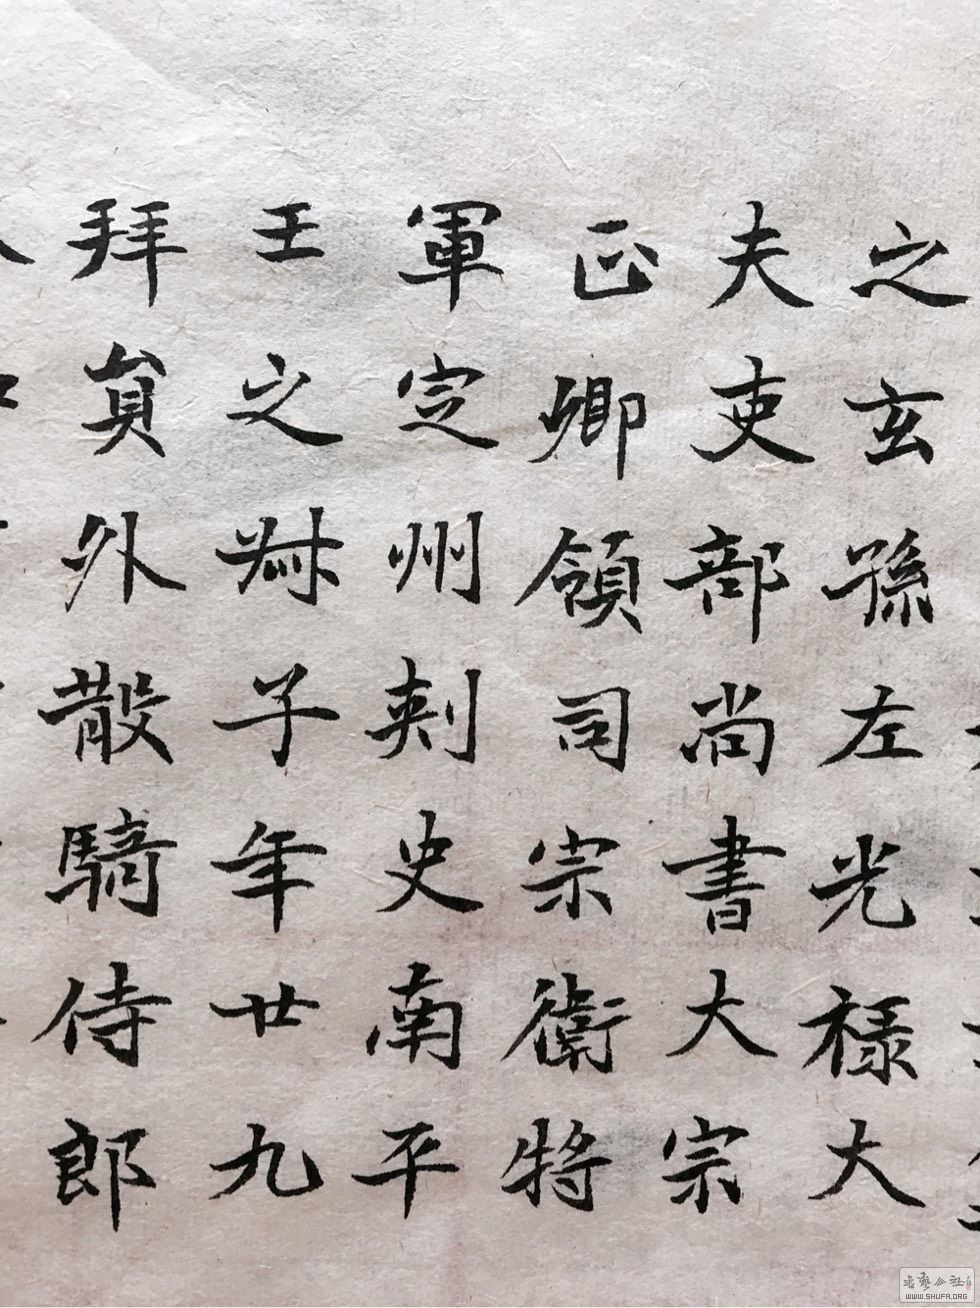 之玄孫左光祿大
夫吏部尚書大宗
正卿領司宗衛將
軍定州刺史南平
王之㐰子年廿九
拜員外散騎侍郎
書藝公社
WWW.SHUFA.ORG